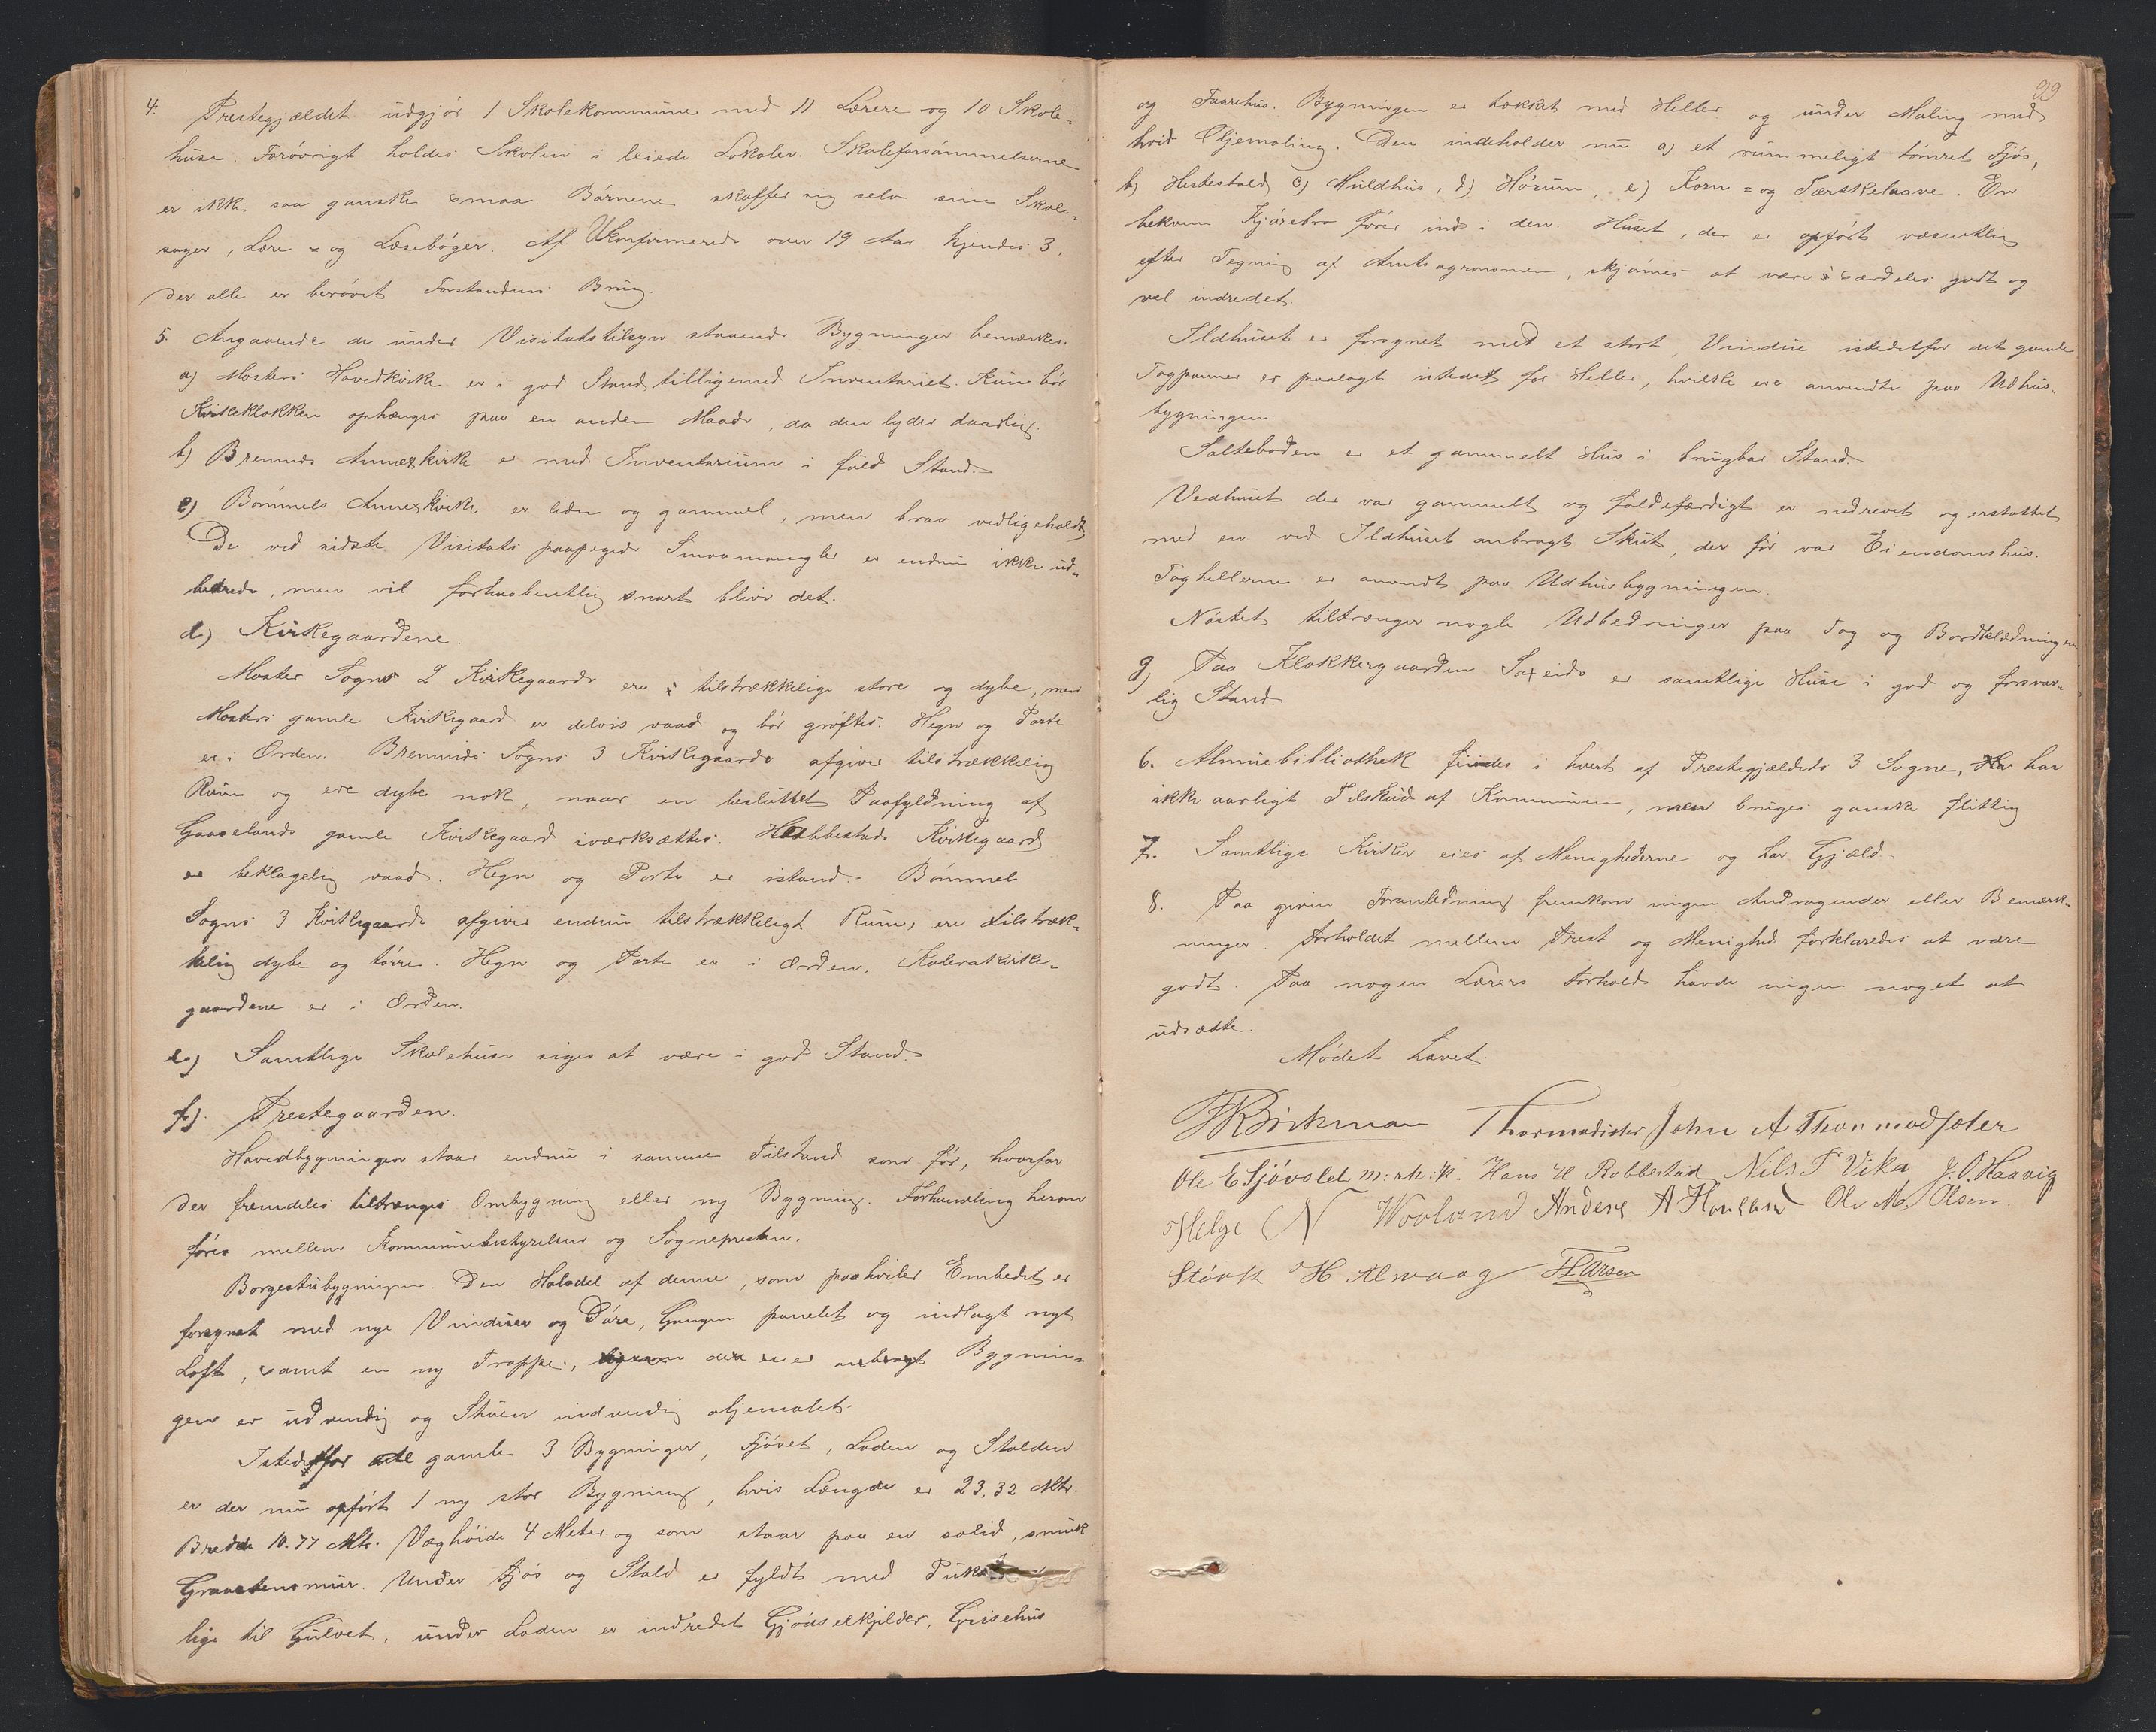 4. Prestegjældet udgjør 1 Skolekommune med 11 Lærere og 10 Skole-
huse. Forøvrigt holdes Skolen i leiede Lokaler. Skoleforsømmelserne
er ikke saa ganske smaa. Børnene skaffer sig selv sine Skole-
sager, Lære- og Læsebøger. Af Ukonfirmerede over 19 Aar kjendes 3,
der alle er berøvet Forstandens Brug.
5. Angaaende de under Visitatstilsyn staaende Bygninger bemærkes.
a) Mosters Hovedkirke er i god Stand tilligemed Inventariet. Kun bør
Kirkeklokken ophænges paa en anden Maade, da den lyder daarlig.
b) Bremnes Annexkirke er med Inventarium i fuld Stand.
c) Bømmels Annexkirke er liden og gammel, men brav vedligeholdt
De ved sidste Visitats paapegede Smaamangler er endnu ikke ud-
bedrede, men vil forhaabentlig snart blive det.
d) Kirkegaardene.
Moster Sogns 2 Kirkegaarde ere tilstrækkelige store og dybe, men
Mosters gamle Kirkegaard er delvis vaad og bør grøftes. Hegn og Porte
er i Orden. Bremnes Sogns 3 Kirkegaarde afgiver tilstrækkelig
Rum og ere dybe nok, naar en besluttet Paafyldning af
Gaaselands gamle Kirkegaard iværksættes. Hebbestads Kirkegaard
er beklagelig vaad. Hegn og Porte er istand. Bømmel
Sogns 3 Kirkegaarde afgiver endnu tilstrækkeligt Rum, ere tilstræk-
kelig dybe og tørre. Hegn og Porte er i Orden. Kolerakirke-
gaardene er i Orden.
e) Samtlige Skolehuse siges at være i god Stand.
f). Prestegaarden.
Hovedbygningen staar endnu i samme Tilstand som før, hvorfor
der fremdeles tiltrænges Ombygning eller ny Bygning. Forhandling herom
føres mellem Kommunebestyrelsen og Sognepresten.
Borgestubygningen. Den Halvdel af denne, som paahviler Embedet er
forsynet med nye Vinduer og Døre, Gangen panelet og indlagt nyt
Loft, samt en ny Trappe, der er anbragt Bygnin-
gen er udvendig og Stuen indvendig oljemalet.
Istedetfor de gamle 3 Bygninger, Fjøset, Laden og Stalden
er der nu opført 1 ny stor Bygning, hvis Længde er 23.32 Mtr.
Bredde 10.77 Mtr. Væghøide 4 Meter og som staar paa en solid, smuk
Graastensmur. Under Fjøs og Stald er fyldt med
lige til Gulvet, under Laden er indredet Gjødselkjelder, Grisehus
99
og Faarehus. Bygningen er tækket med Heller og under Maling med
hvid Oljemaling. Den indeholder nu a) et rummeligt tømret Fjøs,
b) Hestestald c) Muldhus, d) Hørum, e) Korn- og Tærskelaave. En
bekvem Kjørebro fører ind i den. Huset, der er opført væsentlig
efter Tegning af Amtsagronomen, skjønnes at være særdeles godt og
vel indredet.
Ildhuset er forsynet med et stort Vindue istedetfor det gamle
Tagpanner er paalagt istedet for Heller, hvilke ere anvendte paa Udhus-
bygningen.
Salteboden er et gammelt Hus i brugbar Stand.
Vedhuset der var gammelt og faldefærdigt er nedrevet og erstattet
med en ved Ildhuset anbragt Skut, der før var Eiendomshus.
Taghellerne er anvendt paa Udhusbygningen.
Nøstet tiltrænger nogle Udbedringer paa Tag og Bordklædningen
g) Paa Klokkergaarden Sæxeide er samtlige Huse i god og forsvar-
lig Stand.
6. Almuebibliothek findes i hvert af Prestegjældets 3 Sogne, har
ikke aarligt Tilskud af Kommunen, men bruges ganske flittig
7. Samtlige Kirker eies af Menighederne og har Gjæld.
8. Paa given Foranledning fremkom ingen Andragender eller Bemærk-
ninger. Forholdet mellem Prest og Menighed forklaredes at være
godt. Paa nogen Lærers Forhold havde ingen noget at
udsætte.
Mødet hævet.
Thormodsæter John A Thormodsæter
Ole E Sjøvold m: rk: p. Hans H Robbestad Nils T Vika J. O. Haavig
Helge N Wooland Anders A Hovland Ole M. Olsen.
Størk H Alvaag